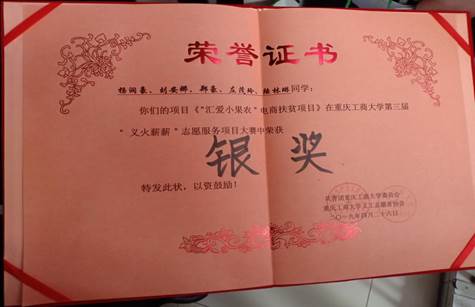 荣誉证书
杨润豪、刘安娜、郑豪、左茂玲、杨林琳同学：
你们的项目《“汇爱小果农”电商扶贫项目》在重庆工商大学第三届
“义火薪薪”志愿服务项目大赛中荣获
银奖
特发此状，以资鼓励！
共青团重庆工商大学委员会
重庆工商大学义工志愿者协会
二〇一九年四月二十六日